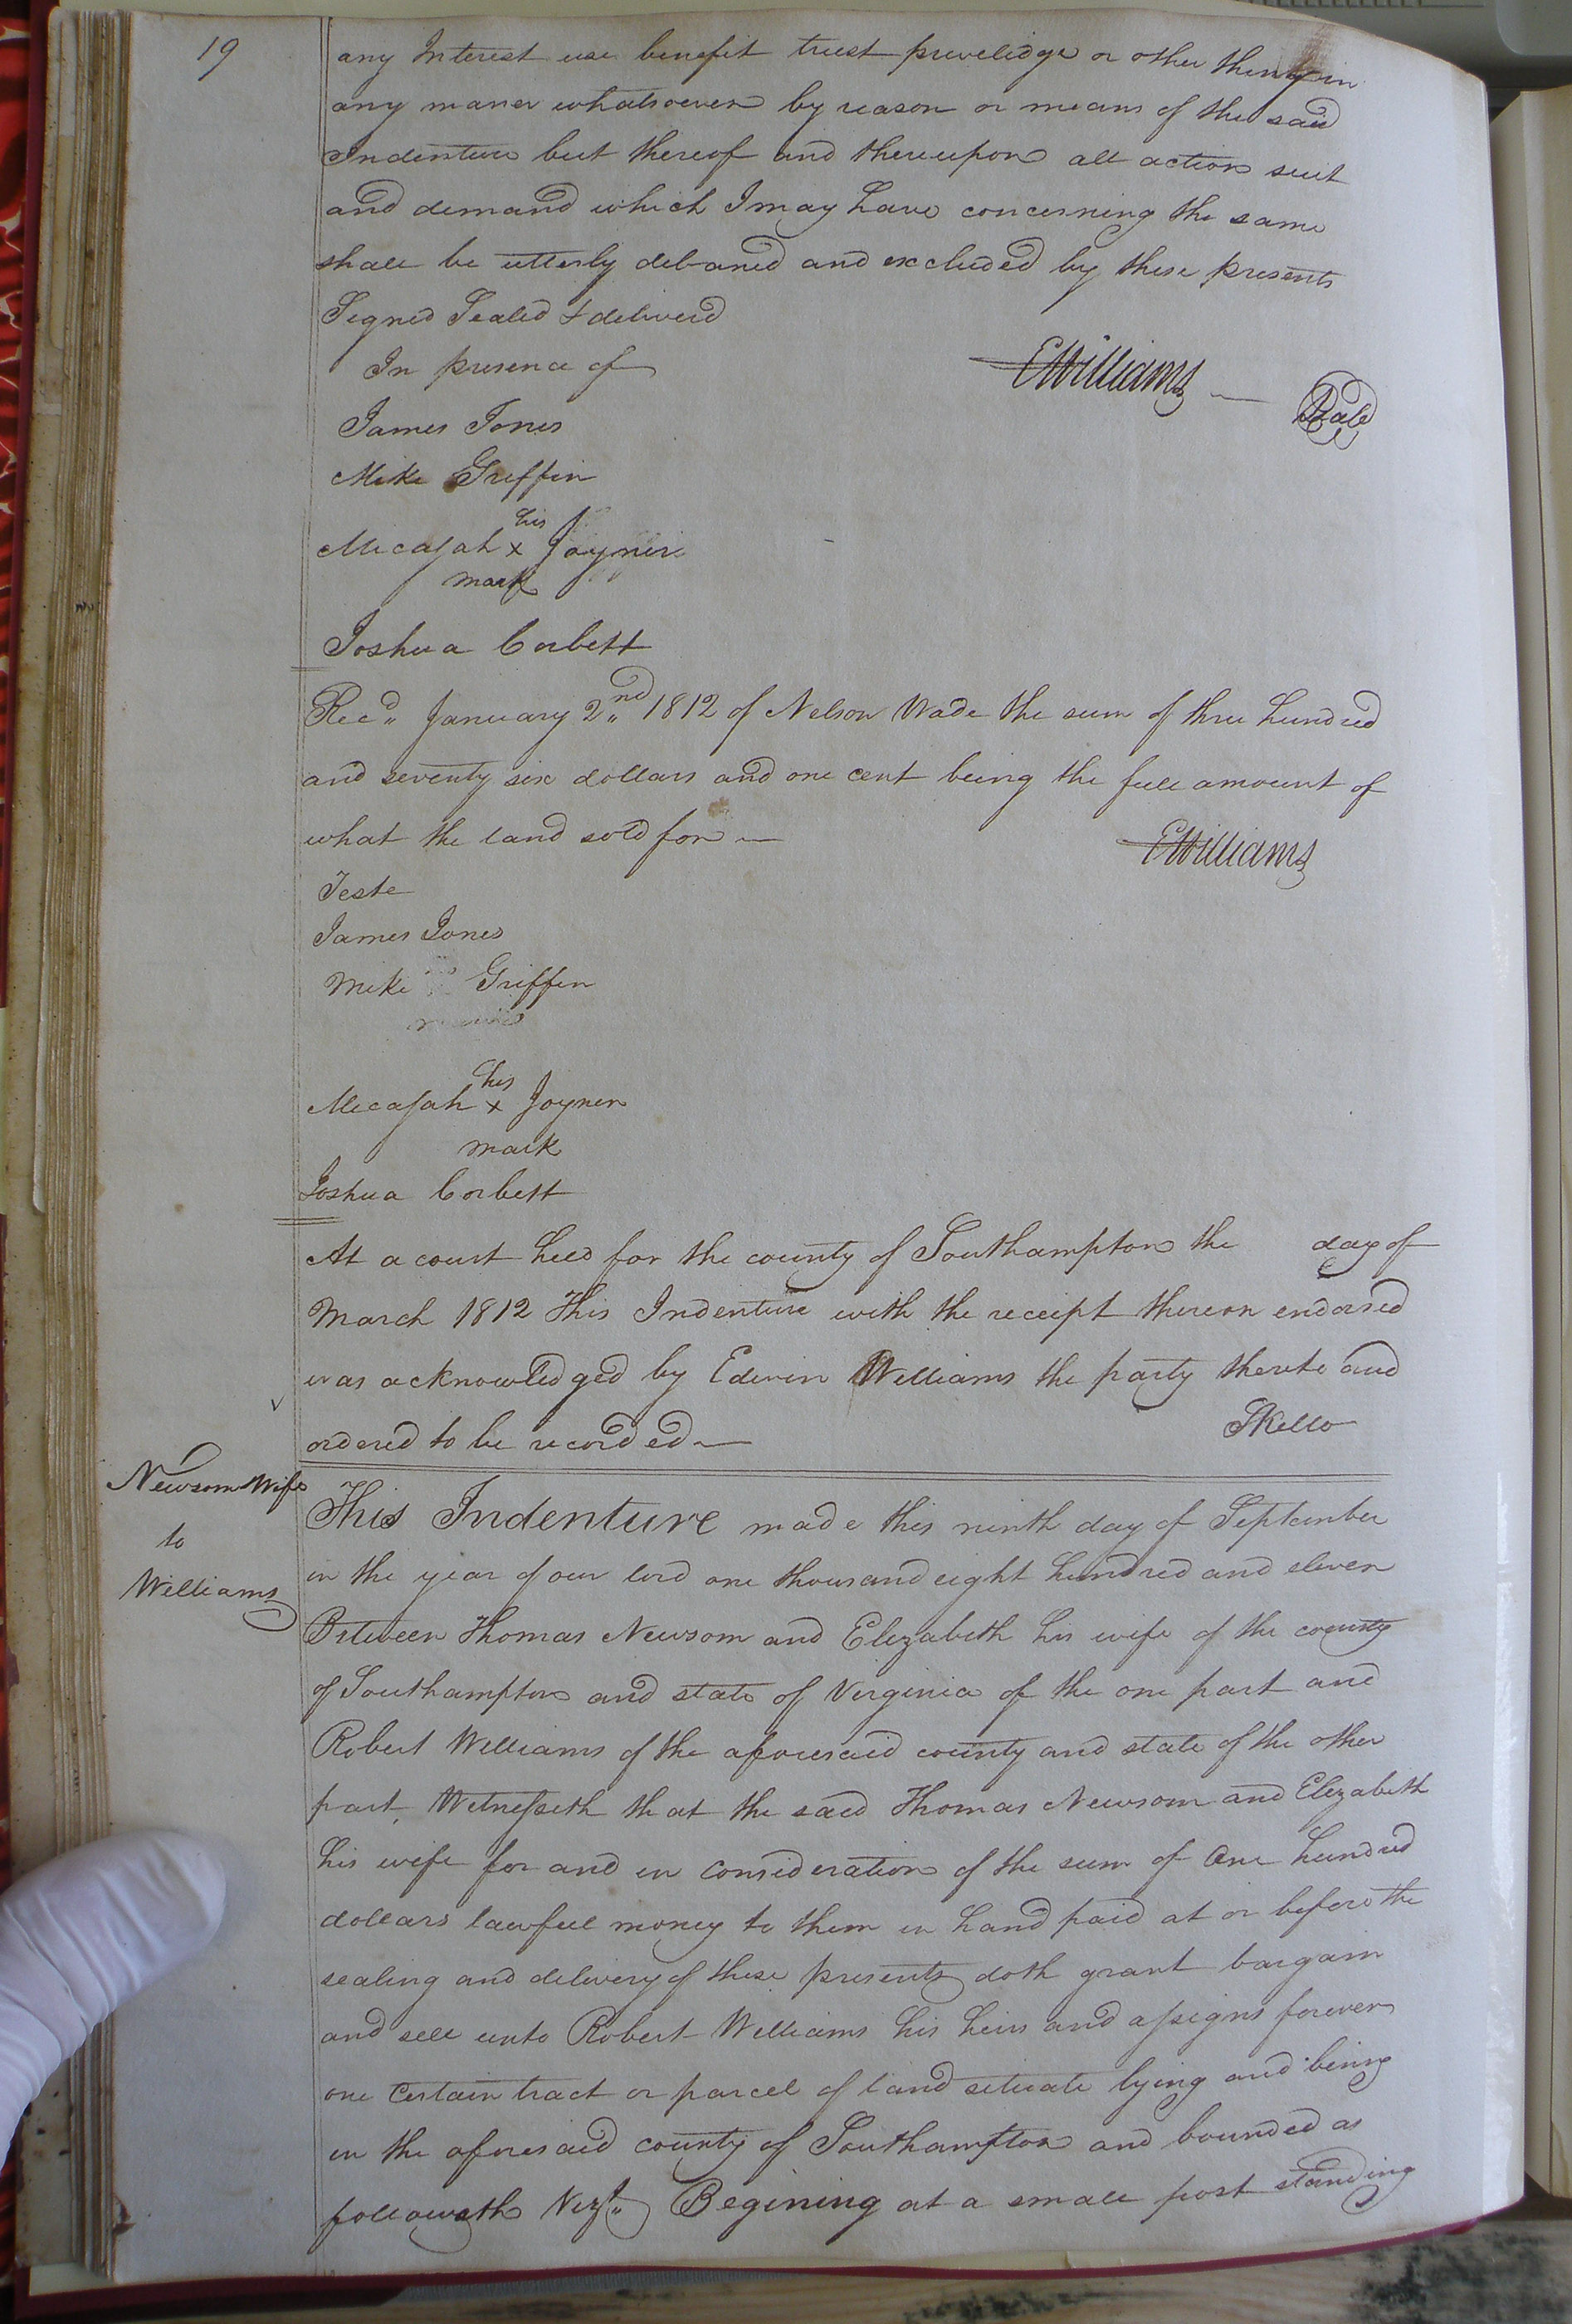 19
any Interest use benefit trust privelidge or other thing in
any maner whatsoever by reason or means of the said
Indenture but thereof and thereupon all action suit
and demand which I may have concerning the same
shall be utterly debared and excluded by these presents
Signed Sealed & deliverd
In presence of
EWilliams — Seale
James Jones
Mike Griffin
his
Micajah x Joyner
mark
Joshua Corbett
Recd. January 2nd 1812 of Nelson Wade the sum of three hundred
and seventy six dollars and one cent being the full amount of
what the land sold for —
EWilliams
Teste
James Jones
Mike Griffin
his
Micajah x Joyner
mark
Joshua Corbett
At a court held for the county of Southampton the day of
March 1812 This Indenture with the receipt thereon endorsed
was acknowledged by Edwin Williams the party thereto and
ordered to be recorded —
SKello
Newsom & Wife
to
Williams
This Indenture made this ninth day of September
in the year of our lord one thousand eight hundred and eleven
Between Thomas Newsom and Elizabeth his wife of the county
of Southampton and state of Virginia of the one part and
Robert Williams of the aforesaid county and state of the other
part, Witnesseth that the said Thomas Newsom and Elizabeth
his wife for and in consideration of the sum of One hundred
dollars lawfull money to them in hand paid at or before the
sealing and delivery of these presents doth grant bargain
and sell unto Robert Williams his heirs and assigns forever
one certain tract or parcel of land situate lying and being
in the aforesaid county of Southampton and bounded as
followeth Vizt. Begining at a small post standing